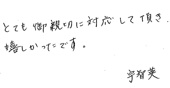 とても御親切に対応して頂き、
嬉しかったです。
宇智英